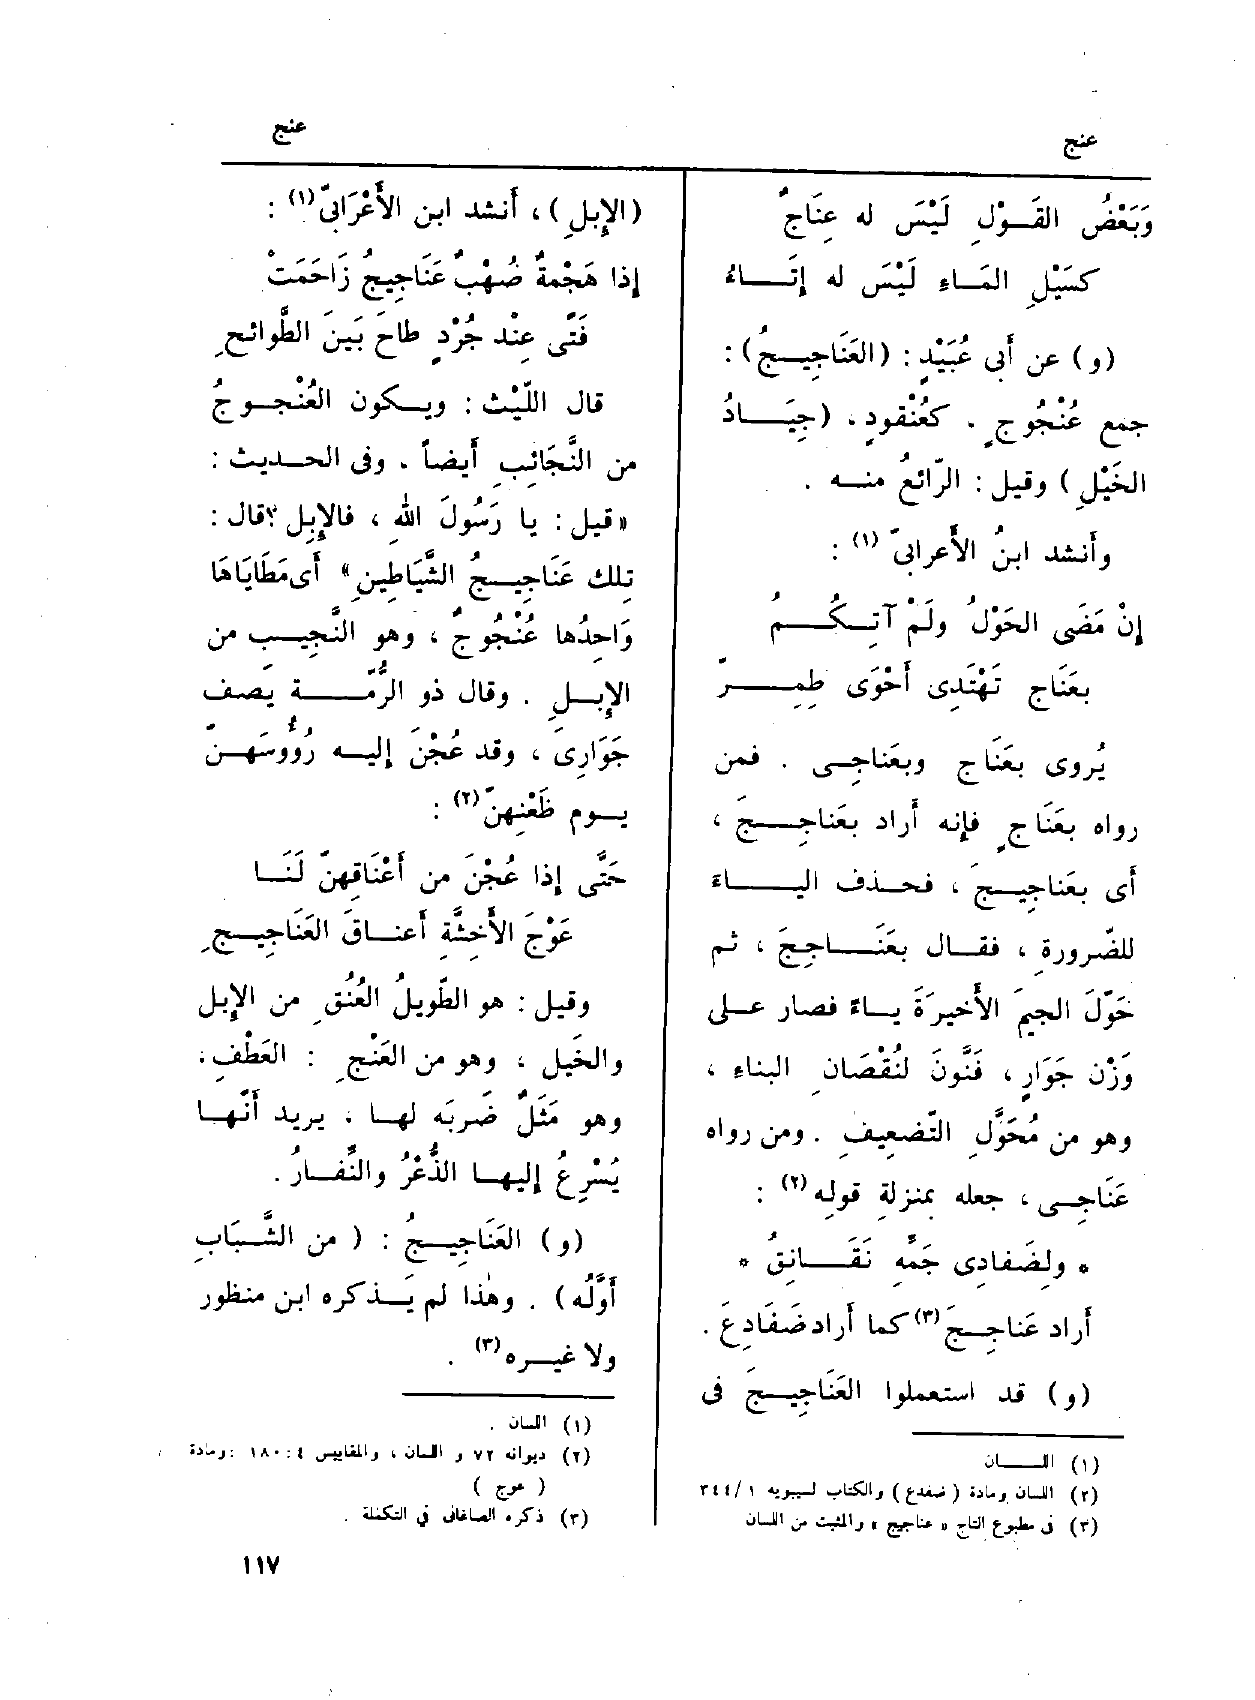 عنج
عنج
وَبَعْضُ القَـوْلِ لَيْسَ له عِنَاجٌ
كسَيْلِ المَـاءِ لَيْسَ له إِتَـاءُ
(و) عن أَبى عُبَيْدٍ : (العَنَاجِيـجُ) :
جمع عُنْجُوجٍ ، كعُنْقودٍ ، (جِيَـادُ
الخَيْلِ) وقيل : الرّائعُ منـه .
وأَنشد ابنُ الأَعرابىّ (١) :
إِنْ مَضَى الحَوْلُ ولَمْ آتِـكُـمُ
بعَنَاج تَهْتَدِى أَحْوَى طِمِـرّ
يُروى بعَنَاج وبعَناجِـى . فمن
رواه بعَنَاجٍ فإِنه أَراد بعَناجِـجَ ،
أَى بعَناجِيـجَ ، فحـذف اليـاءَ
للضّرورةِ ، فقـال بعَنَـاجِجَ ، ثم
حَوّلَ الجيمَ الأَخيرَةَ يـاءً فصار عـلى
وَزْن جَوَارٍ ، فَنَّونَ لنُقْصَانِ البناءِ ،
وهو من مُحَوَّلِ التّضعِيفِ . ومن رواه
عَنَاجِـى ، جعله بمنزلةِ قولِه (٢) :
* ولِضَفادِى جَمِّهِ نَقَـانِقُ *
أَراد عَناجِـجَ (٣) كما أَراد ضَفَادِعَ .
(و) قد استعملوا العَنَاجِيـجَ فى
(١) اللـسان
(٢) اللسان ومادة (ضفدع) والكتاب لسيبويه ١/٣٤٤
(٣) فى مطبوع التاج « عناجيج » والمثبت من اللسان
(الإِبلِ) ، أَنشد ابن الأَعْرَابىّ (١) :
إِذا هَجْمةٌ صُهْبٌ عَنَاجِيجُ زَاحَمَتْ
فَتًى عِنْد جُرْدٍ طاحَ بَينَ الطَّوائحِ
قال اللّيْث : ويـكون العُنْجـوجُ
من النَّجَائبِ أَيضاً . وفى الحـديث :
« قيل : يا رَسُولَ اللهِ ، فالإِبِل ؟ قال :
تِلك عَنَاجِيـجُ الشَّيَاطِينِ » أَى مَطَايَاهَا
وَاحِدُها عُنْجُوجٌ ، وهو النَّجِيـب من
الإِبـلِ . وقال ذو الرُّمّـة يَصف
جَوَارِىَ ، وقد عُجْنَ إِليـه رُؤُوسَهـنّ
يـوم ظَعْنِهنّ (٢) :
حَتَّى إِذا عُجْنَ من أَعْنَاقِهنّ لَنَـا
عَوْجَ الأَخِشَّةِ أَعنـاقَ العَنَاجِيـجِ
وقيل : هو الطَّويلُ العُنُقِ من الإِبل
والخَيل ، وهو من العَنْجِ : العَطْفِ ،
وهو مَثَلٌ ضَربَه لهـا ، يريد أَنّهـا
يُسْرِعُ إِليهـا الذُّعْرُ والنِّفـارُ .
(و) العَنَاجِيـجُ : ( من الشَّبَابِ
أَوَّلُه) . وهٰذا لم يَـذكره ابن منظور
ولا غيـره (٣) .
(١) اللسان .
(٢) ديوانه ٧٢ و اللسان ، والمقاييس ٤ : ١٨٠ : ومادة
( عوج )
(٣) ذكره الصاغانى في التكملة .
١١٧